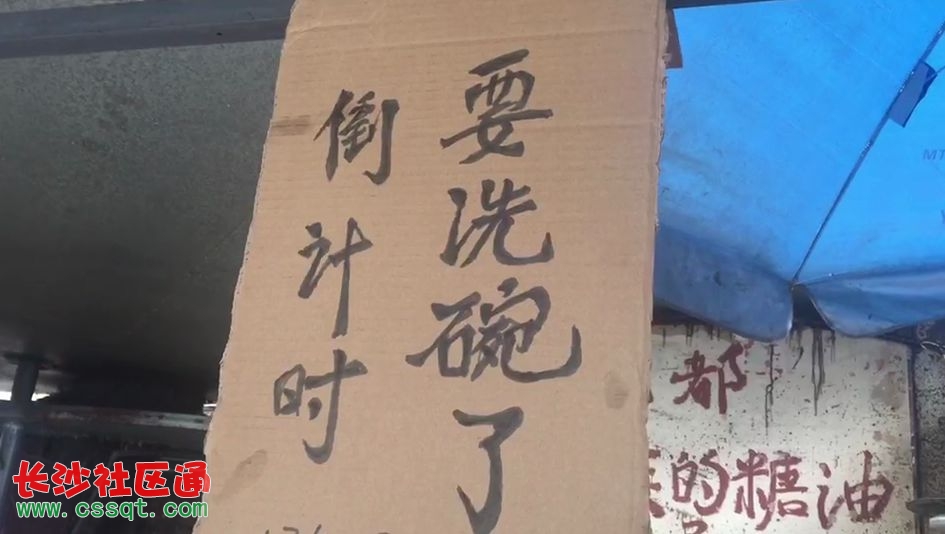 要洗碗了
倒计时
都
的糖油
MT
长沙社区通
www.cssqt.com